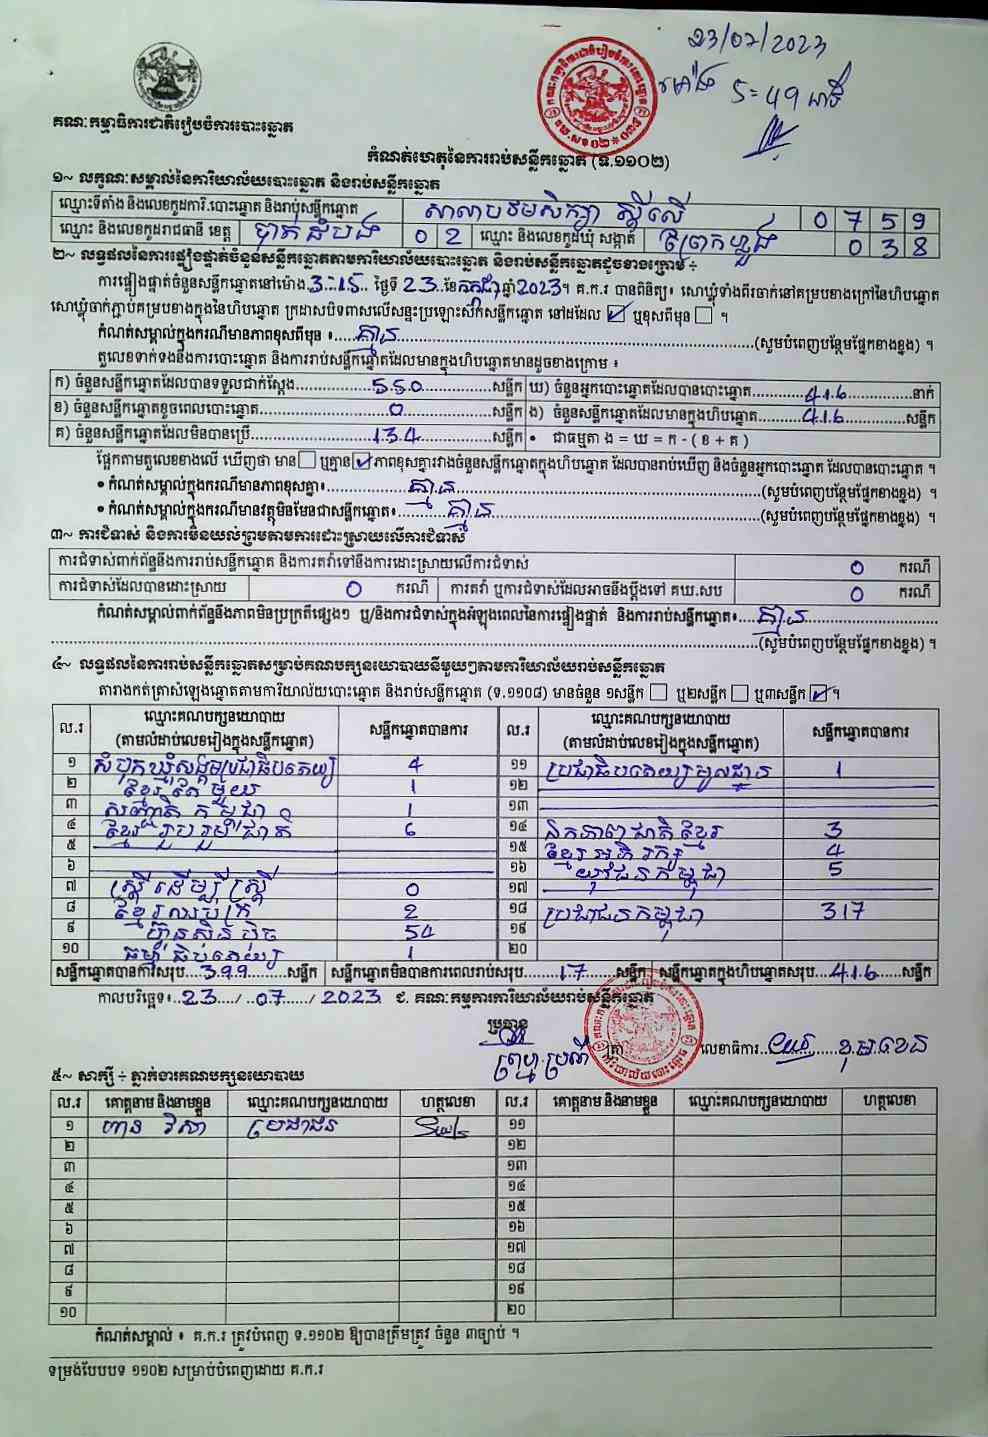 23/07/2023
ម៉ោង 5:49 នាទី
គណៈកម្មាធិការជាតិរៀបចំការបោះឆ្នោត
កំណត់ហេតុនៃការរាប់សន្លឹកឆ្នោត (ទ.១១០២)
១~ លក្ខណៈសម្គាល់នៃការិយាល័យបោះឆ្នោត និងរាប់សន្លឹកឆ្នោត
ឈ្មោះទីតាំង និងលេខកូដការិ.បោះឆ្នោត និងរាប់សន្លឹកឆ្នោត សាលាបឋមសិក្សា ស្តីលើ 0 7 5 9
ឈ្មោះ និងលេខកូដរាជធានី ខេត្ត បាត់ដំបង 0 2 ឈ្មោះ និងលេខកូដឃុំ សង្កាត់ 0 3 8
២~ លទ្ធផលនៃការផ្ទៀងផ្ទាត់ចំនួនសន្លឹកឆ្នោតតាមការិយាល័យបោះឆ្នោត និងរាប់សន្លឹកឆ្នោតដូចខាងក្រោម ÷
ការផ្ទៀងផ្ទាត់ចំនួនសន្លឹកឆ្នោតនៅម៉ោង.3:15.. ថ្ងៃទី 23.ខែកក្កដាឆ្នាំ2023។ គ.ក.រ បានពិនិត្យ៖ សោឃ្លុំទាំងពីរចាក់នៅគម្របខាងក្រៅនៃហិបឆ្នោត
សោឃ្លុំចាក់ភ្ជាប់គម្របខាងក្នុងនៃហិបឆ្នោត ក្រដាសបិទពាសលើសន្ទះប្រឡោះស៊កសន្លឹកឆ្នោត នៅដដែល ☑ ឬខុសពីមុន ☐ ។
កំណត់សម្គាល់ក្នុងករណីមានភាពខុសពីមុន ៖.....គ្មាន.....(សូមបំពេញបន្ថែមផ្នែកខាងខ្នង) ។
តួលេខទាក់ទងនឹងការបោះឆ្នោត និងការរាប់សន្លឹកឆ្នោតដែលមានក្នុងហិបឆ្នោតមានដូចខាងក្រោម ៖
ក) ចំនួនសន្លឹកឆ្នោតដែលបានទទួលជាក់ស្តែង.....550.....សន្លឹក ឃ) ចំនួនអ្នកបោះឆ្នោតដែលបានបោះឆ្នោត.....416.....នាក់
ខ) ចំនួនសន្លឹកឆ្នោតខូចពេលបោះឆ្នោត.....0.....សន្លឹក ង) ចំនួនសន្លឹកឆ្នោតដែលមានក្នុងហិបឆ្នោត.....416.....សន្លឹក
គ) ចំនួនសន្លឹកឆ្នោតដែលមិនបានប្រើ.....134.....សន្លឹក • ជាធម្មតា ង = ឃ = ក - ( ខ + គ )
ផ្អែកតាមតួលេខខាងលើ ឃើញថា មាន ☐ ឬគ្មាន ☑ ភាពខុសគ្នារវាងចំនួនសន្លឹកឆ្នោតក្នុងហិបឆ្នោត ដែលបានរាប់ឃើញ និងចំនួនអ្នកបោះឆ្នោត ដែលបានបោះឆ្នោត ។
• កំណត់សម្គាល់ក្នុងករណីមានភាពខុសគ្នា៖.....គ្មាន.....(សូមបំពេញបន្ថែមផ្នែកខាងខ្នង) ។
• កំណត់សម្គាល់ក្នុងករណីមានវត្ថុមិនមែនជាសន្លឹកឆ្នោត៖.....គ្មាន.....(សូមបំពេញបន្ថែមផ្នែកខាងខ្នង) ។
៣~ ការជំទាស់ និងការមិនយល់ព្រមតាមការដោះស្រាយលើការជំទាស់
ការជំទាស់ពាក់ព័ន្ធនឹងការរាប់សន្លឹកឆ្នោត និងការតវ៉ាទៅនឹងការដោះស្រាយលើការជំទាស់ 0 ករណី
ការជំទាស់ដែលបានដោះស្រាយ 0 ករណី ការតវ៉ា ឬការជំទាស់ដែលអាចនឹងប្តឹងទៅ គឃ.សប 0 ករណី
កំណត់សម្គាល់ពាក់ព័ន្ធនឹងភាពមិនប្រក្រតីផ្សេងៗ ឬ/និងការជំទាស់ក្នុងអំឡុងពេលនៃការផ្ទៀងផ្ទាត់ និងការរាប់សន្លឹកឆ្នោត៖.....គ្មាន.....
.....(សូមបំពេញបន្ថែមផ្នែកខាងខ្នង) ។
៤~ លទ្ធផលនៃការរាប់សន្លឹកឆ្នោតសម្រាប់គណបក្សនយោបាយនីមួយៗតាមការិយាល័យរាប់សន្លឹកឆ្នោត
តារាងកត់ត្រាសំឡេងឆ្នោតតាមការិយាល័យបោះឆ្នោត និងរាប់សន្លឹកឆ្នោត (ទ.១១០៨) មានចំនួន ១សន្លឹក ☐ ឬ២សន្លឹក ☐ ឬ៣សន្លឹក ☑ ។
ល.រ ឈ្មោះគណបក្សនយោបាយ (តាមលំដាប់លេខរៀងក្នុងសន្លឹកឆ្នោត) សន្លឹកឆ្នោតបានការ ល.រ ឈ្មោះគណបក្សនយោបាយ (តាមលំដាប់លេខរៀងក្នុងសន្លឹកឆ្នោត) សន្លឹកឆ្នោតបានការ
១ សំបុកឃ្មុំសង្គមប្រជាធិបតេយ្យ 4 ១១ ប្រជាធិបតេយ្យមូលដ្ឋាន 1
២ ខ្មែរតែមួយ 1 ១២
៣ សញ្ជាតិកម្ពុជា 1 ១៣
៤ ខ្មែររួបរួមជាតិ 6 ១៤ ឯកភាពជាតិខ្មែរ 3
៥ ១៥ ខ្មែរអភិរក្ស 4
៦ ១៦ យុវជនកម្ពុជា 5
៧ ស្ត្រីដើម្បីស្ត្រី 0 ១៧
៨ ខ្មែរឈប់ក្រ 2 ១៨ ប្រជាជនកម្ពុជា 317
៩ ហ៊្វុនស៊ិនប៉ិច 54 ១៩
១០ ធម្មាធិបតេយ្យ 1 ២០
សន្លឹកឆ្នោតបានការសរុប...399...សន្លឹក សន្លឹកឆ្នោតមិនបានការពេលរាប់សរុប...17...សន្លឹក សន្លឹកឆ្នោតក្នុងហិបឆ្នោតសរុប...416...សន្លឹក
កាលបរិច្ឆេទ៖..23../..07../ 2023 ជ. គណៈកម្មការការិយាល័យរាប់សន្លឹកឆ្នោត
ប្រធាន
ព្រហ្ម ប្រណី ត្រា លេខាធិការ
៥~ សាក្សី ÷ ភ្នាក់ងារគណបក្សនយោបាយ
ល.រ គោត្តនាម និងនាមខ្លួន ឈ្មោះគណបក្សនយោបាយ ហត្ថលេខា ល.រ គោត្តនាម និងនាមខ្លួន ឈ្មោះគណបក្សនយោបាយ ហត្ថលេខា
១ ហាន វិសា ប្រជាជន ១១
២ ១២
៣ ១៣
៤ ១៤
៥ ១៥
៦ ១៦
៧ ១៧
៨ ១៨
៩ ១៩
១០ ២០
កំណត់សម្គាល់ ៖ គ.ក.រ ត្រូវបំពេញ ទ.១១០២ ឱ្យបានត្រឹមត្រូវ ចំនួន ៣ច្បាប់ ។
ទម្រង់បែបបទ ១១០២ សម្រាប់បំពេញដោយ គ.ក.រ